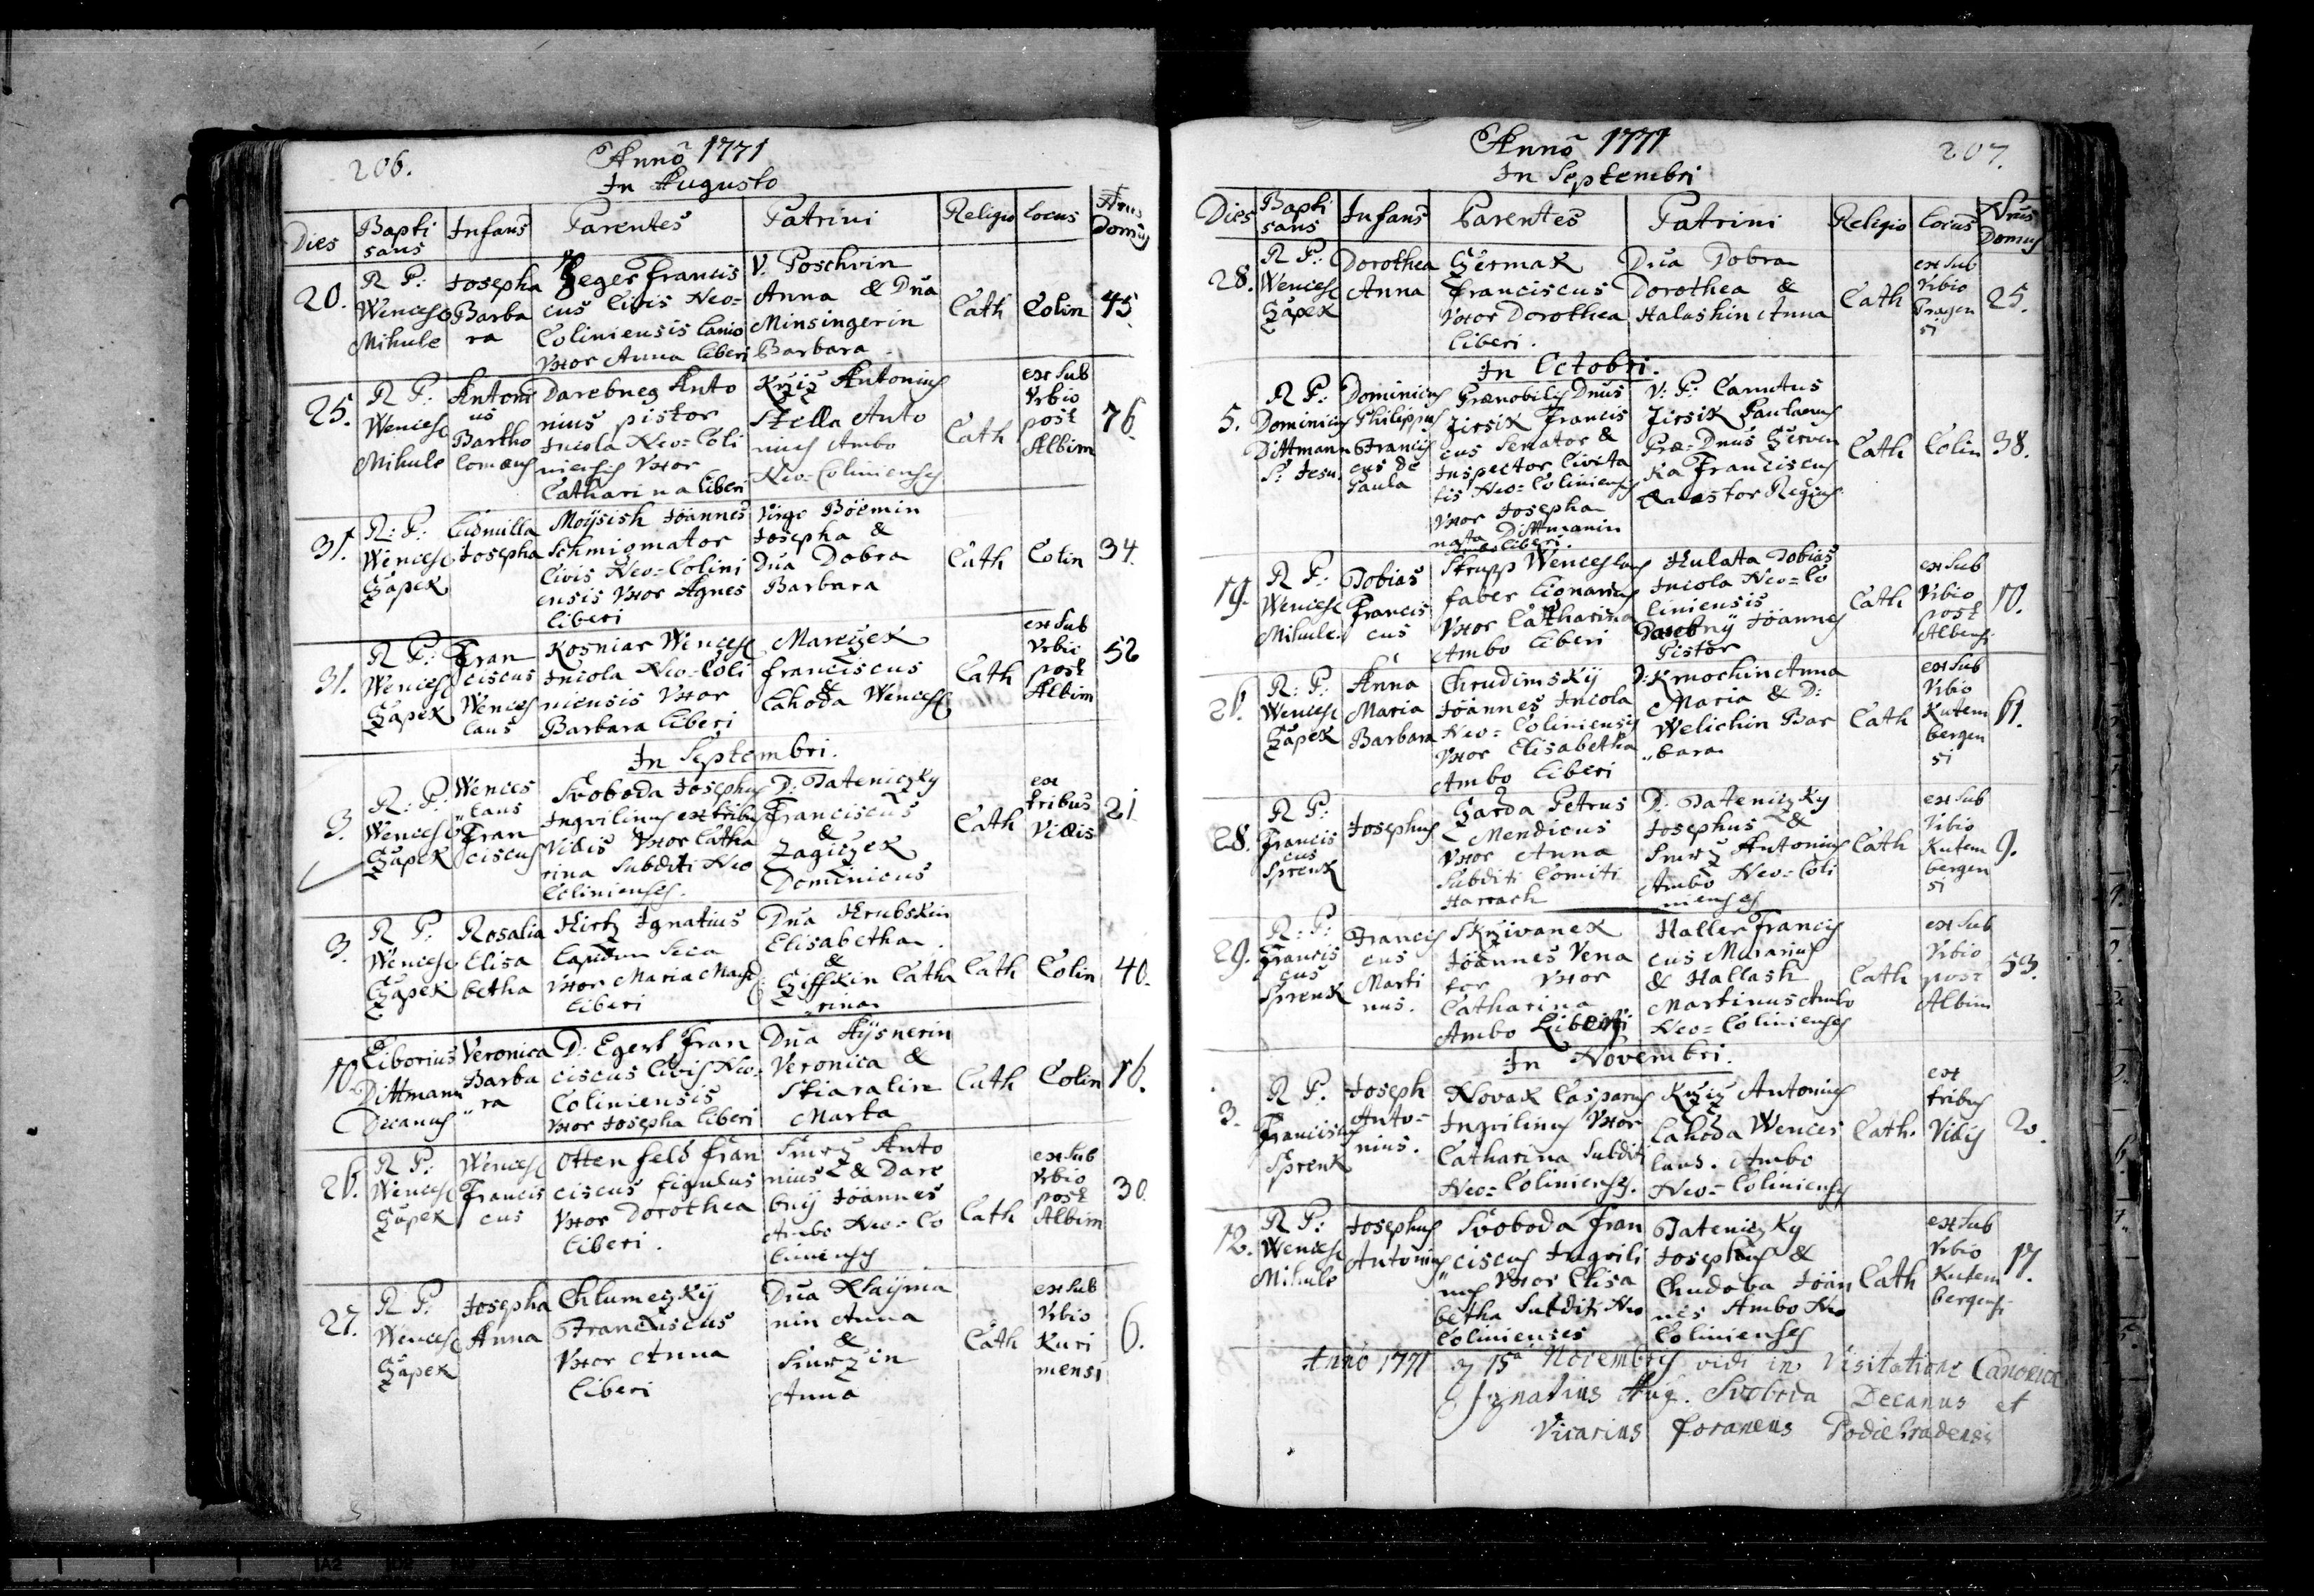 206.
Anno 1771
In Augusto
Dies
Bapti
sans
Infans
Parentes
Patrini
Religio
Locus
Nrus
Domus
20.
R P:
Wencesl
Mikule
Josepha
Barba
ra
Heger Francis
cus Civis Neo=
Coliniensis Lanio
Uxor Anna liberi
V. Poschvin
Anna & Dna
Minsingerin
Barbara
Cath
Colin
45.
25.
R P:
Wencesl
Mikule
Antoni
us
Bartho
lomæus
Darebneg Anto
nius pistor
Incola Neo=Coli
niensis Uxor
Catharina liberi
Krziz Antonius
Stella Anto
nius Ambo
Neo=Colinienses
Cath
ex Sub
Urbio
post
Albim
76.
31.
R: P:
Wencesl
Czapek
Ludmilla
Josepha
Moysish Joannes
Schmigmator
Civis Neo=Colini
ensis Uxor Agnes
liberi
Virgo Böemin
Josepha &
Dna Dobra
Barbara
Cath
Colin
34.
31.
R P:
Wencesl
Czapek
Fran
ciscus
Wences
laus
Kosniar Wencesl
Incola Neo=Coli
niensis Uxor
Barbara liberi
Mareczek
Franciscus
&
Lahoda Wencesl
Cath
ex Sub
Urbio
post
Albim
52
In Septembri.
3.
R: P:
Wencesl
Czapek
Wences
"laus
Fran
ciscus
Svoboda Josephus
Inqvilinus ex tribus
Vidis Uxor Catha
rina Subditi Neo
Colinienses.
D: Dateniczky
Franciscus
&
Zagiczek
Dominicus
Cath
ex
tribus
Vidis
21
3.
R P:
Wencesl
Czapek
Rosalia
Elisa
betha
Hirtz Ignatius
Lapidum Seca
Uxor Maria Magd:
liberi
Dna Hrubskin
Elisabetha
&
Cziffkin Catha
"rina
Cath
Colin
40.
10.
Liborius
Dittmann
Decanus
Veronica
Barba
"ra
D: Egert Fran
ciscus Civis Neo=
Coliniensis
Uxor Josepha liberi
Dna Aysnerin
Veronica &
Skiaralin
Marta
Cath
Colin
16.
26.
R P:
Wencesl
Czapek
Wencesl
Francis
cus
Ottenfeld Fran
ciscus Figulus
Uxor Dorothea
liberi.
Smrz Anto
nius & Dare
bny Joannes
Ambo Neo=Co
linienses
Cath
ex Sub
Urbio
post
Albim
30.
27.
R P:
Wencesl
Czapek
Josepha
Anna
Chlumeczky
Franciscus
Uxor Anna
liberi
Dna Klayma
nin Anna
&
Smrzin
Anna
Cath
ex Sub
Urbio
Kuri
mensi
6.
Anno 1771
In Septembri
207.
Dies
Bapti
sans
Infans
Parentes
Patrini
Religio
Locus
Nrus
Domus
28.
R P:
Wencesl
Czapek
Dorothea
Anna
Czermak
Franciscus
Uxor Dorothea
liberi.
Dna Dobra
Dorothea &
Halashin Anna
Cath
ex Sub
Urbio
Pragen
si
25.
In Octobri.
5.
R P:
Dominicus
Dittmann
S: Jesu
Dominicus
Philippus
Francis
cus de
Paula
Prænobilis Dnus
Jirsik Francis
cus Senator &
Inspector Civita
tis Neo=Coliniensis
Uxor Josepha
nata Dittmanin
liberi.
V: P: Camutus
Jirsik Paulanus
Præ=Dnus Czerven
ka Franciscus
Quæstor Regius
Cath
Colin
38.
19.
R P:
Wencesl
Mikule.
Tobias
Francis
cus
Skrupp Wenceslaus
faber lignarius
Uxor Catharina
Ambo liberi
Hulata Tobias
Incola Neo=Co
liniensis
Darebny Joannes
Pistor
Cath
ex Sub
Urbio
post
Albensi
10.
21.
R: P:
Wencesl
Czapek
Anna
Maria
Barbara
Chrudimsky
Joannes Incola
Neo=Coliniensis
Uxor Elisabetha
Ambo liberi
D: Kmochin Anna
Maria & D:
Welichin Bar
"bara
Cath
ex Sub
Urbio
Kutem
bergen
si
61.
28.
R P:
Francis
cus
Sprenk
Josephus
Czarda Petrus
Mendicus
Uxor Anna
Subditi Comiti
Harrach
D: Dateniczky
Josephus &
Smrz Antonius
Ambo Neo=Coli
nienses
Cath
ex Sub
Urbio
Kutem
bergen
si
9.
29.
R: P:
Francis
cus
Sprenk
Francis
cus
Marti
nus.
Skrzivanek
Joannes Vena
tor Uxor
Catharina
Ambo Liberi
Haller Francis
cus Murarius
& Hallash
Martinus Ambo
Neo=Colinienses
Cath
ex Sub
Urbio
post
Albim
53.
In Novembri.
3.
R P.
Franciscus
Sprenk
Joseph
Anto=
nius.
Novak Casparus
Inqvilinus Uxor
Catharina Subditi
Neo=Colinienses.
Krziz Antonius
Lahoda Wences
laus. Ambo
Neo=Colinienses
Cath.
ex
tribus
Vidis
20.
12.
R P:
Wencesl
Mikule
Josephus
Antonius
Svoboda Fran
"ciscus Inqvili
nus Uxor Elisa
betha Subditi Neo
Colinienses
Dateniczky
Josephus &
Chudoba Joan
nes Ambo Neo
Colinienses
Cath
ex Sub
Urbio
Kutem
bergensi
17.
Anno 1771 15a Novembris vidi in Visitatione Canonica
Ignatius Aug. Svoboda Decanus et
Vicarius foraneus Podiebradensis